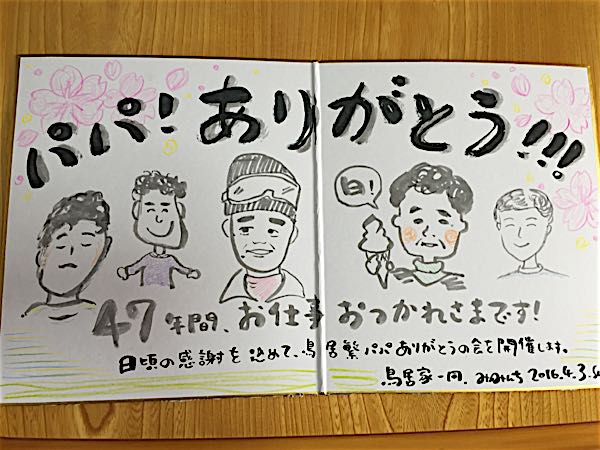 パパ!ありがとう!!!
白!
47年間、お仕事おつかれさまです!
日頃の感謝を込めて、鳥居繁パパありがとうの会を開催します。
鳥居家一同、 2016.4.3